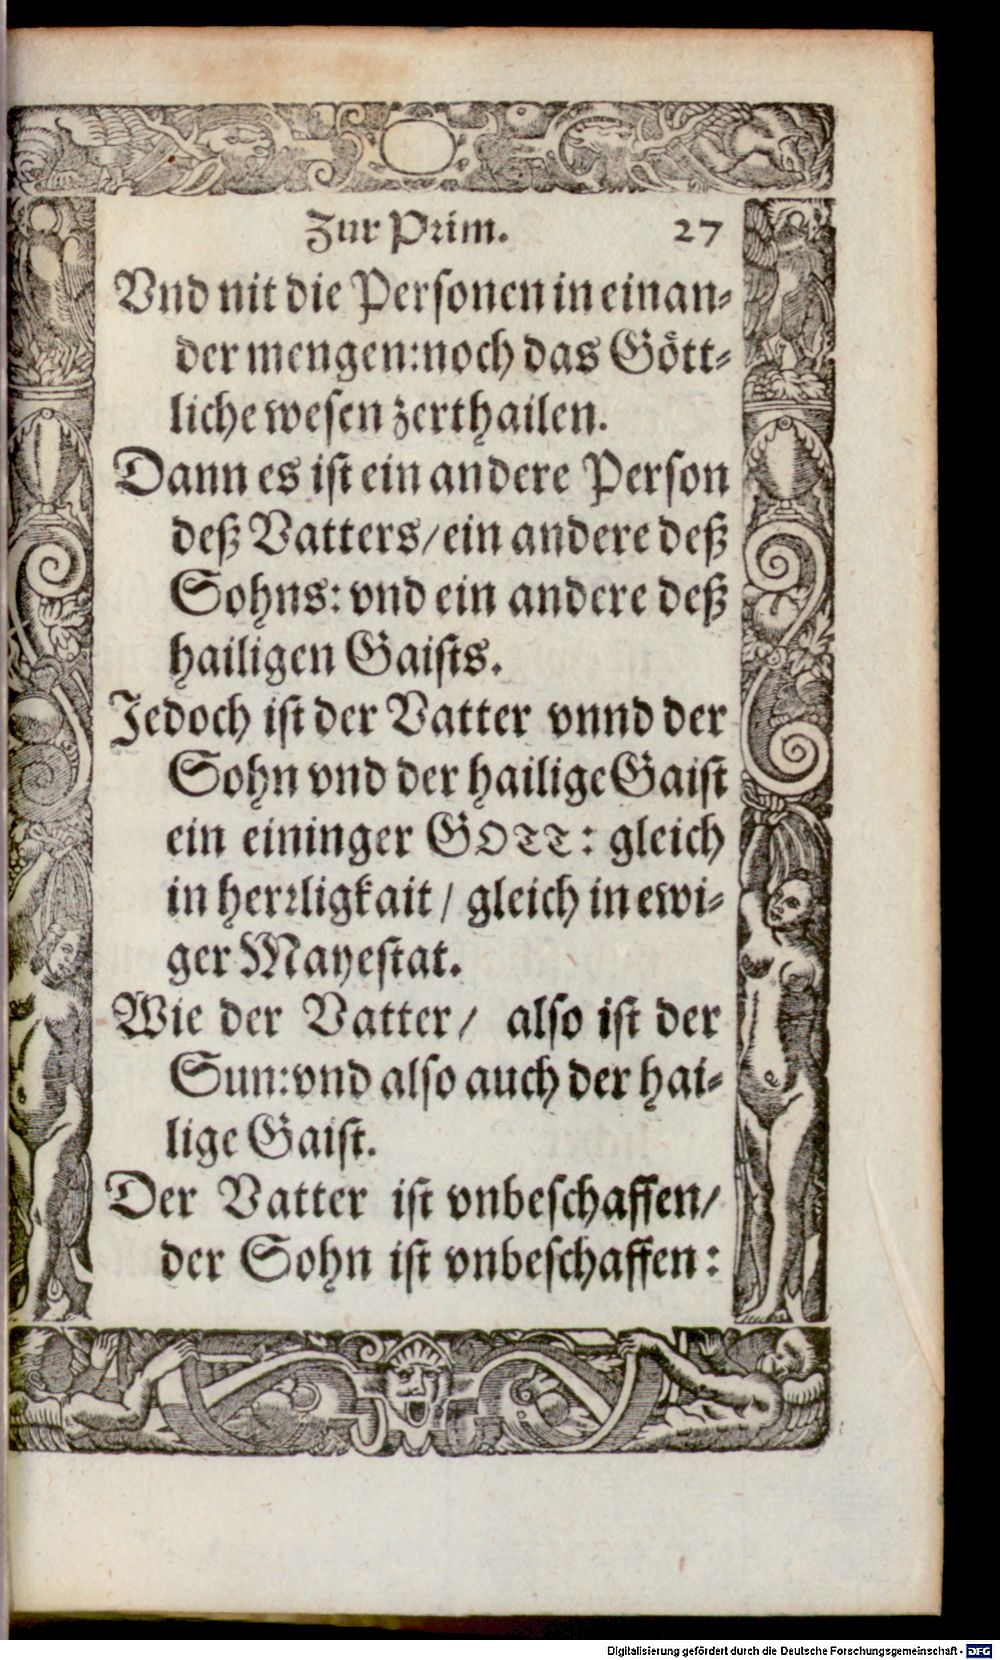 Zur Prim. 27
Vnd nit die Personen in einan-
der mengen: noch das Gött-
liche wesen zerthailen.
Dann es ist ein andere Person
deß Vatters/ ein andere deß
Sohns: vnd ein andere deß
hailigen Gaists.
Jedoch ist der Vatter vnnd der
Sohn vnd der hailige Gaist
ein eininger GOTT: gleich
in herrligkait / gleich in ewi-
ger Mayestat.
Wie der Vatter/ also ist der
Sun: vnd also auch der hai-
lige Gaist.
Der Vatter ist vnbeschaffen/
der Sohn ist vnbeschaffen:
Digitalisierung gefördert durch die Deutsche Forschungsgemeinschaft - DFG